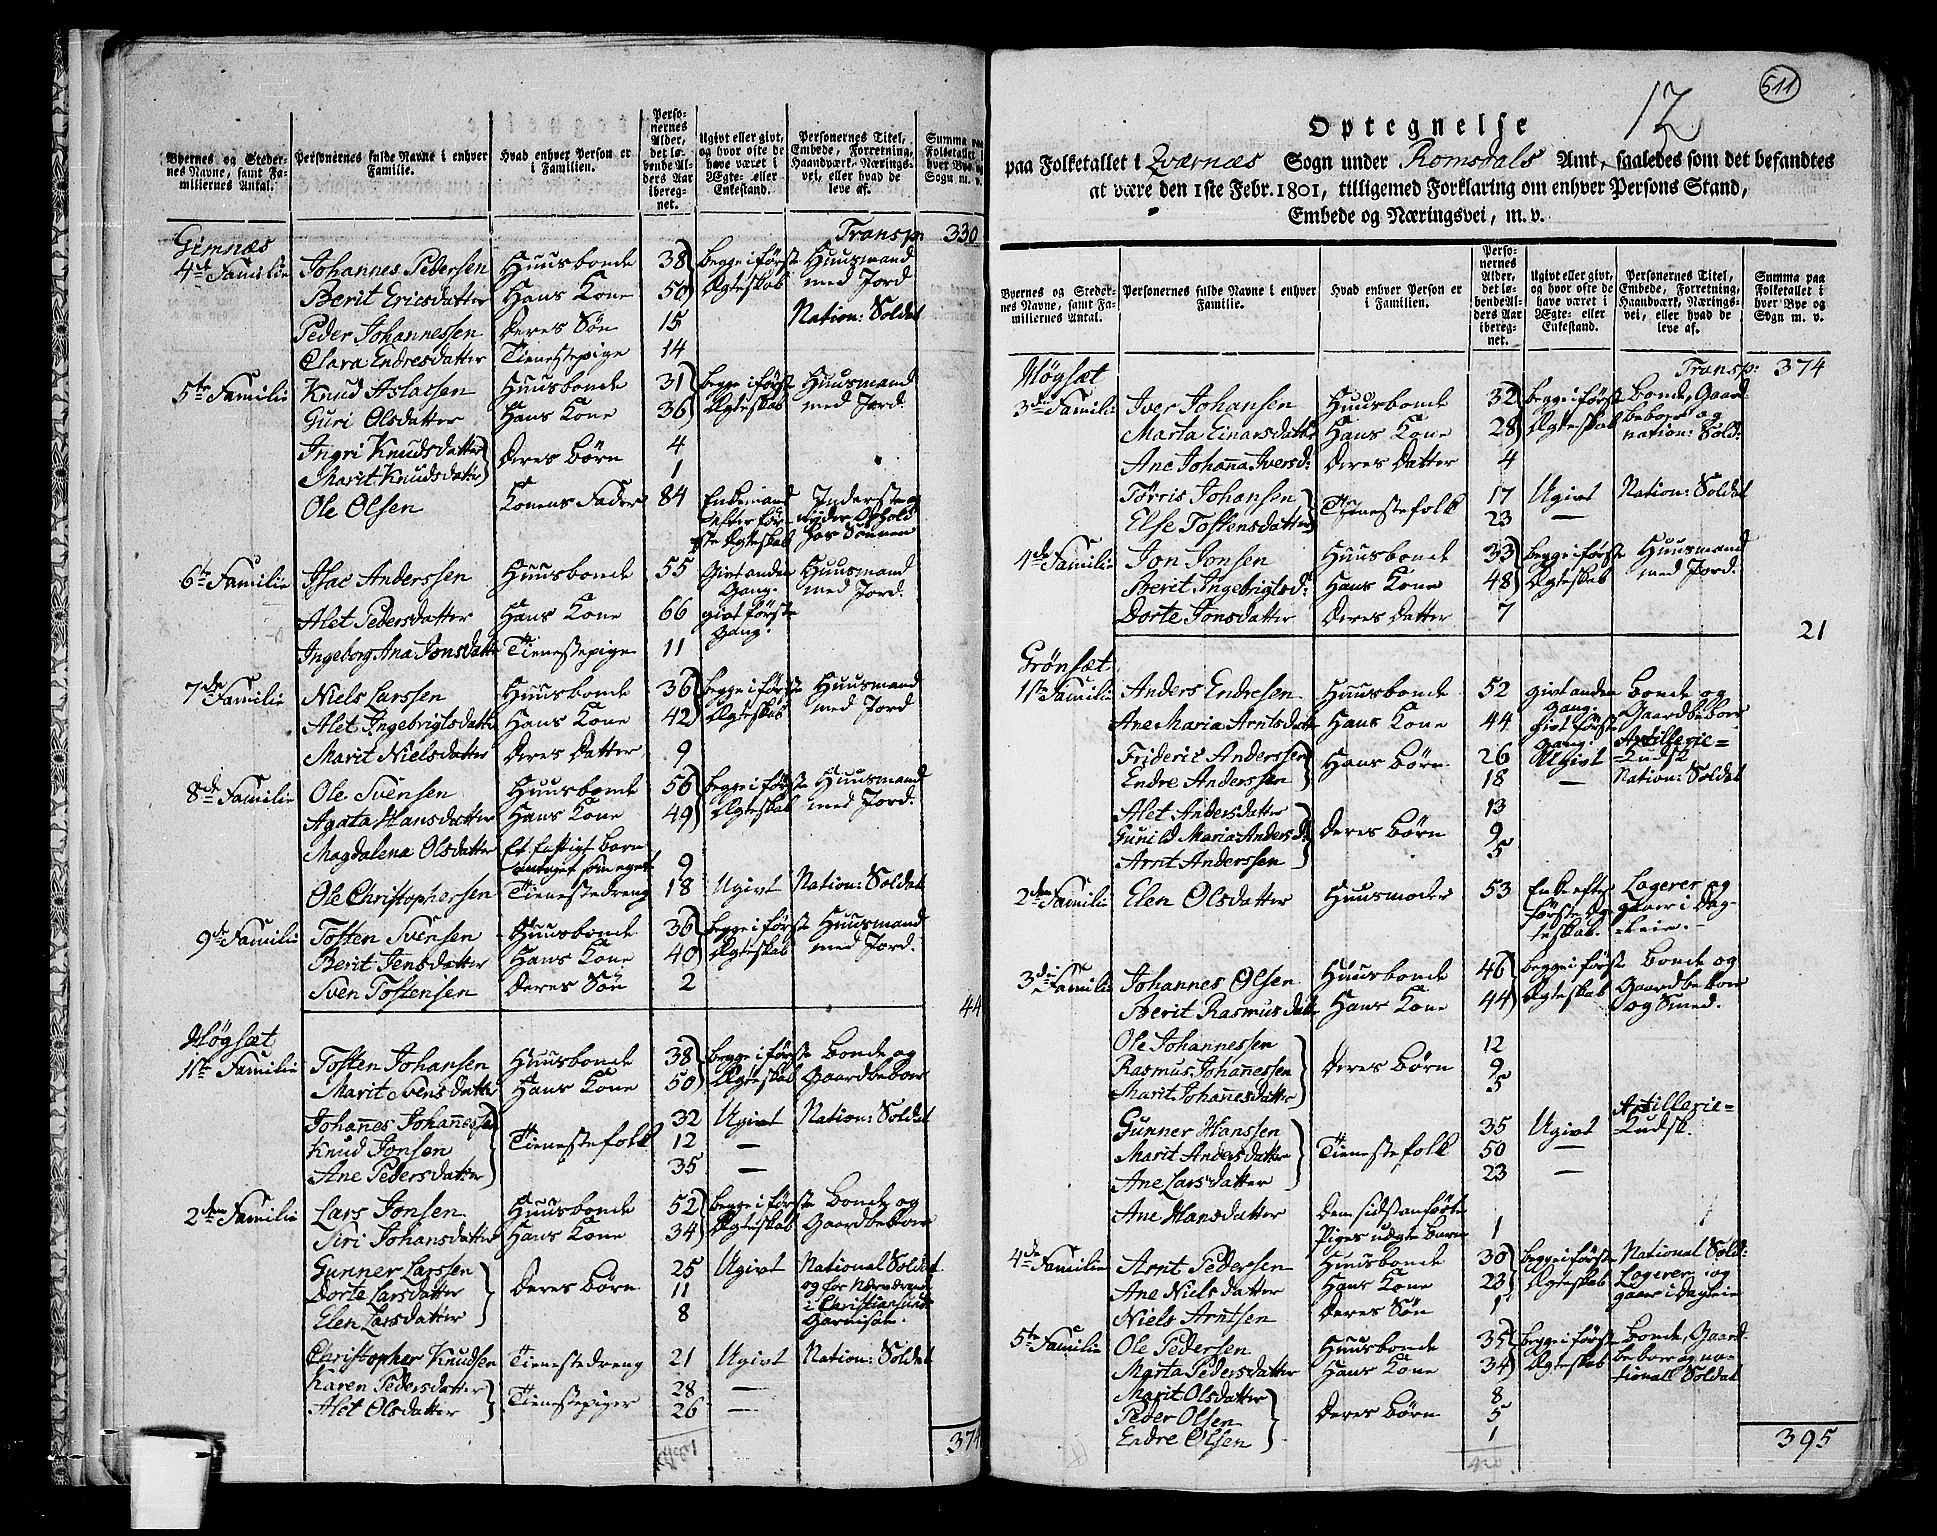 Byernes og Steder-
nes Navne, samt Fa-
miliernes Antal.
Personernes fulde Navne i enhver
Familie.
Hvad enhver Person er
i Familien.
Perso-
nernes
Alder,
det lø-
bende Al-
ders Aar
ibereg-
net.
Ugivt eller givt,
og hvor ofte de
have været i
Ægte- eller
Enkestand.
Personernes Titel,
Embede, Forretning,
Haandværk, Nærings-
vei, eller hvad de
leve af.
Summa paa
Folketallet i
hver Bye og
Sogn m. v.
Transp: 330
Gimnæs
4de Familie Johannes Pedersen Huusbonde 38 begge i første Huusmand
Berit Ericsdatter Hans Kone 50 Ægteskab med Jord
Peder Johannessen Deres Søn 15 Nation: Soldat
Clara Endresdatter Tienestepige 14
5te Familie Knud Aslaksen Huusbonde 31 begge i første Huusmand
Guri Olsdatter Hans Kone 36 Ægteskab med Jord.
Ingri Knudsdatter Deres Børn 4
Marit Knudsdatter 1
Ole Olsen Konens Fader 84 Enkemand Inderste og
efter før- nyder Ophold
ste Ægteskab hos Sønnen
6te Familie Isac Anderssen Huusbonde 55 Givt anden Huusmand
Gang. med Jord.
Alet Pedersdatter Hans Kone 66 givt første
Gang.
Ingeborg Ana Jonsdatter Tienestepige 11
7de Familie Niels Larssen Huusbonde 36 begge i første Huusmand
Alet Ingebrigtsdatter Hans Kone 42 Ægteskab med Jord
Marit Nielsdatter Deres Datter 9
8de Familie Ole Svensen Huusbonde 56 begge i første Huusmand
Agata Hansdatter Hans Kone 49 Ægteskab med Jord.
Magdalena Olsdatter Et fattigt Barn
antaget som eget 9
Ole Christophersen Tienestedreng 18 Ugivt Nation: Soldat
9de Familie Tosten Svensen Huusbonde 36 begge i første Huusmand
Berit Jensdatter Hans Kone 40 Ægteskab med Jord.
Sven Tostensen Deres Søn 2
44
Høgsæt
1ste Familie Tosten Johansen Huusbonde 38 begge i første Bonde og
Marit Svensdatter Hans Kone 50 Ægteskab Gaardbeboer
Johannes Johannessen 32 Ugivt Nation: Soldat
Knud Jonsen Tienestefolk 12 —
Ane Pedersdatter 35 —
2den Familie Lars Jonsen Huusbonde 52 begge i første Bonde og
Siri Johansdatter Hans Kone 34 Ægteskab Gaardbeboer
Gunner Larssen 25 Ugivt National Soldat
Dorte Larsdatter Deres Børn 11 og for Nærværende
Elen Larsdatter 8 i Christiansunds
Garnison.
Christopher Knudsen Tienestedreng 21 Ugivt Nation: Soldat
Karen Pedersdatter Tienestepiger 28 —
Alet Olsdatter 26 —
374
511
12
Optegnelse
paa Folketallet i Qværnæs Sogn under Romsdals Amt, saaledes som det befandtes
at være den 1ste Febr. 1801, tilligemed Forklaring om enhver Persons Stand,
Embede og Næringsvei, m. v.
Byernes og Steder-
nes Navne, samt Fa-
miliernes Antal.
Personernes fulde Navne i enhver
Familie.
Hvad enhver Person er
i Familien.
Perso-
nernes
Alder,
det lø-
bende Al-
ders Aar
ibereg-
net.
Ugivt eller givt,
og hvor ofte de
have været i
Ægte- eller
Enkestand.
Personernes Titel,
Embede, Forretning,
Haandværk, Nærings-
vei, eller hvad de
leve af.
Summa paa
Folketallet i
hver Bye og
Sogn m. v.
Transp: 374
Høgsæt
3die Familie Iver Johansen Huusbonde 32 begge i første Bonde, Gaard-
Marta Einarsdatter Hans Kone 28 Ægteskab beboer og
nation: Sold:
Ane Johanna Iversd: Deres Datter 4
Tørris Johansen Tienestefolk 17 Ugivt Nation: Soldat
Else Tostensdatter 23 —
4de Familie Jon Jonsen Huusbonde 33 begge i første Huusmand
Berit Ingebrigtsd: Hans Kone 48 Ægteskab med Jord.
Dorte Jonsdatter Deres Datter 7
21
Grønsæt
1ste Familie Anders Endresen Huusbonde 52 givt anden Bonde og
Gang. Gaardbeboer
Ane Maria Arntsdatter Hans Kone 44 givt første
Gang.
Frideric Anderssen Hans Børn 26 Ugivt Artillerie-
Kudsk
Endre Anderssen 18 — Nation: Soldat
Alet Andersdatter 13
Gunild Maria Andersd: Deres Børn 9
Arnt Anderssen 5
2den Familie Elen Olsdatter Huusmoder 53 Enke efter Logerer og
første Æg- gaaer i Dag-
teskab. eleie.
3die Familie Johannes Olsen Huusbonde 46 begge i første Bonde og
Berit Rasmusdatter Hans Kone 44 Ægteskab Gaardbeboer
og Smed.
Ole Johannessen 12
Rasmus Johannessen Deres Børn 9
Marit Johannesdatter 5
Gunner Hanssen 35 Ugivt Artillerie-
Kudsk.
Marit Andersdatter Tienestefolk 50 —
Ane Larsdatter 23 —
Ane Hansdatter Den sidstanførte
Piges uægte Barn 1
4de Familie Arnt Pedersen Huusbonde 30 begge i første National Sold:
Ane Nielsdatter Hans Kone 23 Ægteskab Logerer og
Niels Arntsen Deres Søn 1 gaaer i Dagleie
5te Familie Ole Pedersen Huusbonde 35 begge i første Bonde, Gaard-
Marta Pedersdatter Hans Kone 34 Ægteskab beboer og na-
tional Soldat
Marit Olsdatter 8
Peder Olsen Deres Børn 5
Endre Olsen 1
395